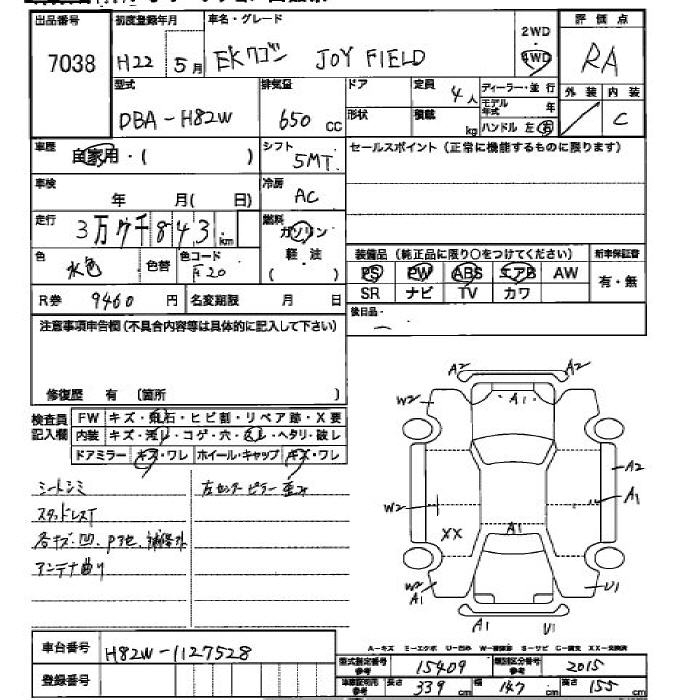 出品番号 初度登録年月 車名・グレード 2WD 評価点
7038 H22 5月 EKワゴン JOY FIELD 4WD RA
型式 排気量 ドア 定員 4人 ディーラー・並行 外装 内装
DBA-H82W 650cc 形状 積載 kg モデル年式 年 C
ハンドル 左 右
車歴 自家用・( ) シフト 5MT セールスポイント (正常に機能するものに限ります)
車検 年 月( 日) 冷房 AC
走行 3万7千843km 燃料 ガソリン
軽油
( )
色 水色 色替 色コード F20
装備品 (純正品に限り○をつけてください) 新車保証書
PS PW ABS エアB AW 有・無
SR ナビ TV カワ
R券 9460円 名変期限 月 日
後日品-
注意事項申告欄(不具合内容等は具体的に記入して下さい)
修復歴 有 (箇所 )
検査員記入欄 FW キズ・飛石・ヒビ割・リペア跡・X要
内装 キズ・汚レ・コゲ・穴・スレ・ヘタリ・破レ
ドアミラー キズ・ワレ ホイール・キャップ キズ・ワレ
シートシミ 左センターピラー歪み
スタッドレスT
各キズ、凹、P色、補修跡
アンテナ曲り
A2 A2
W2 A1
A2
W2 A1
XX A1
W2 A1 U1
A1 U1
A-キズ E-エクボ U-凹み W-補修跡 S-サビ C-腐食 XX-交換済
車台番号 H82W-1127528
登録番号
型式指定番号 参考 15409 類別区分番号 参考 2015
参考 長さ 339cm 幅 147cm 高さ 155cm